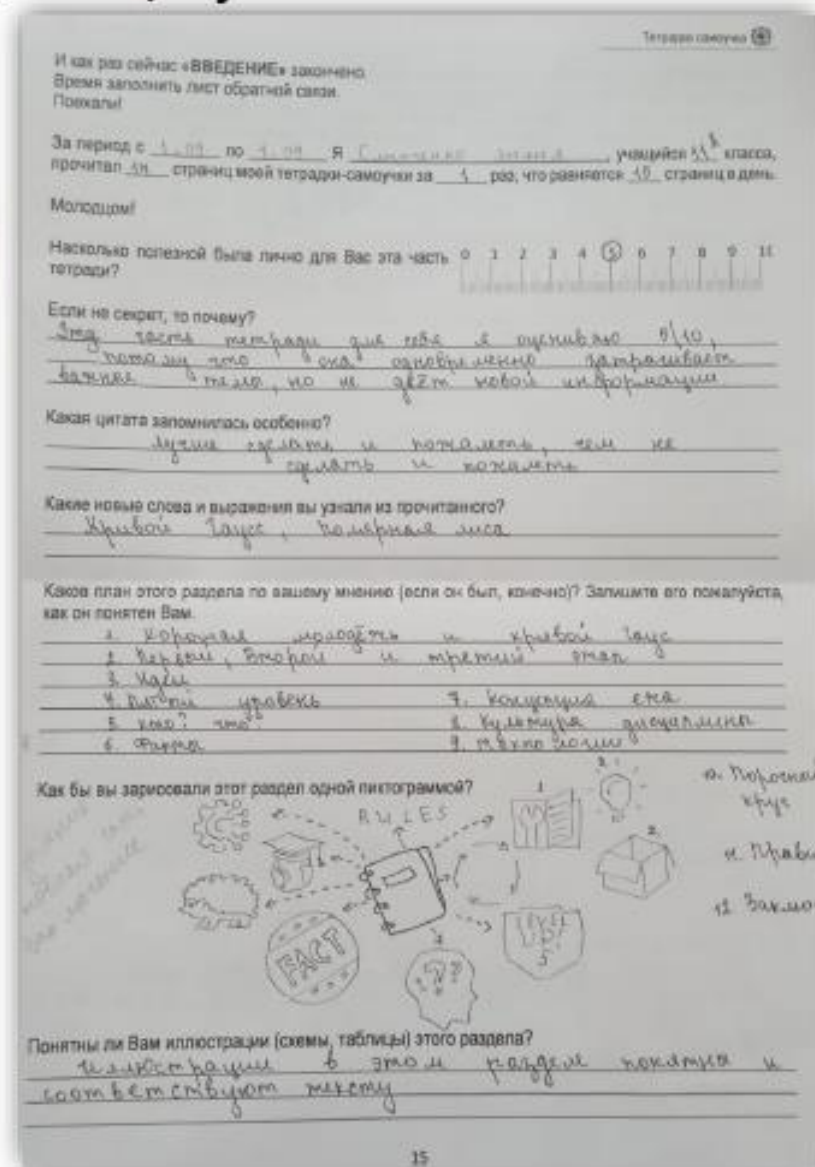 Тетрадка самоучка
И как раз сейчас «ВВЕДЕНИЕ» закончено.
Время заполнить лист обратной связи.
Поехали!
За период с 1.09 по 1.09 Я , учащийся 11 класса,
прочитал 14 страниц моей тетрадки-самоучки за 1 раз, что равняется страниц в день.
Молодцом!
Насколько полезной была лично для Вас эта часть 0 1 2 3 4 5 6 7 8 9 10
тетради?
Если не секрет, то почему?
Эта часть тетради для себя я оцениваю 5\10,
потому что она одновременно затрагивает
важные , но не даёт новой информации
Какая цитата запомнилась особенно?
лучше сделать и пожалеть, чем не
сделать и пожалеть
Какие новые слова и выражения вы узнали из прочитанного?
Кривой Гаусс, полярная лиса
Каков план этого раздела по вашему мнению (если он был, конечно)? Запишите его пожалуйста,
как он понятен Вам.
1. молодёжь и кривой Гаус
2. Первый, второй и третий этап
3. Идеи
4. Пятый уровень 7. ежа
5. кого? что? 8. Культура дисциплины
6. Факты 9. технологии
Как бы вы зарисовали этот раздел одной пиктограммой?
10. Порочный
круг
RULES
1
2
11. Прави
12. Заклю
FACT
LEVEL
UP!
5
7
Понятны ли Вам иллюстрации (схемы, таблицы) этого раздела?
иллюстрации в этом разделе понятны и
соответствуют тексту
15